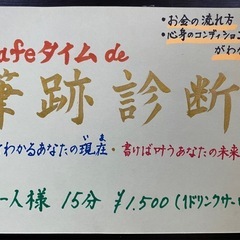 ・お金の流れ方
・心身のコンディション
がわか
afeタイム de
筆跡診断
てわかるあなたの現在・書けば叶うあなたの未来
いま
一人様 15分 ¥1.500(1ドリンクサー